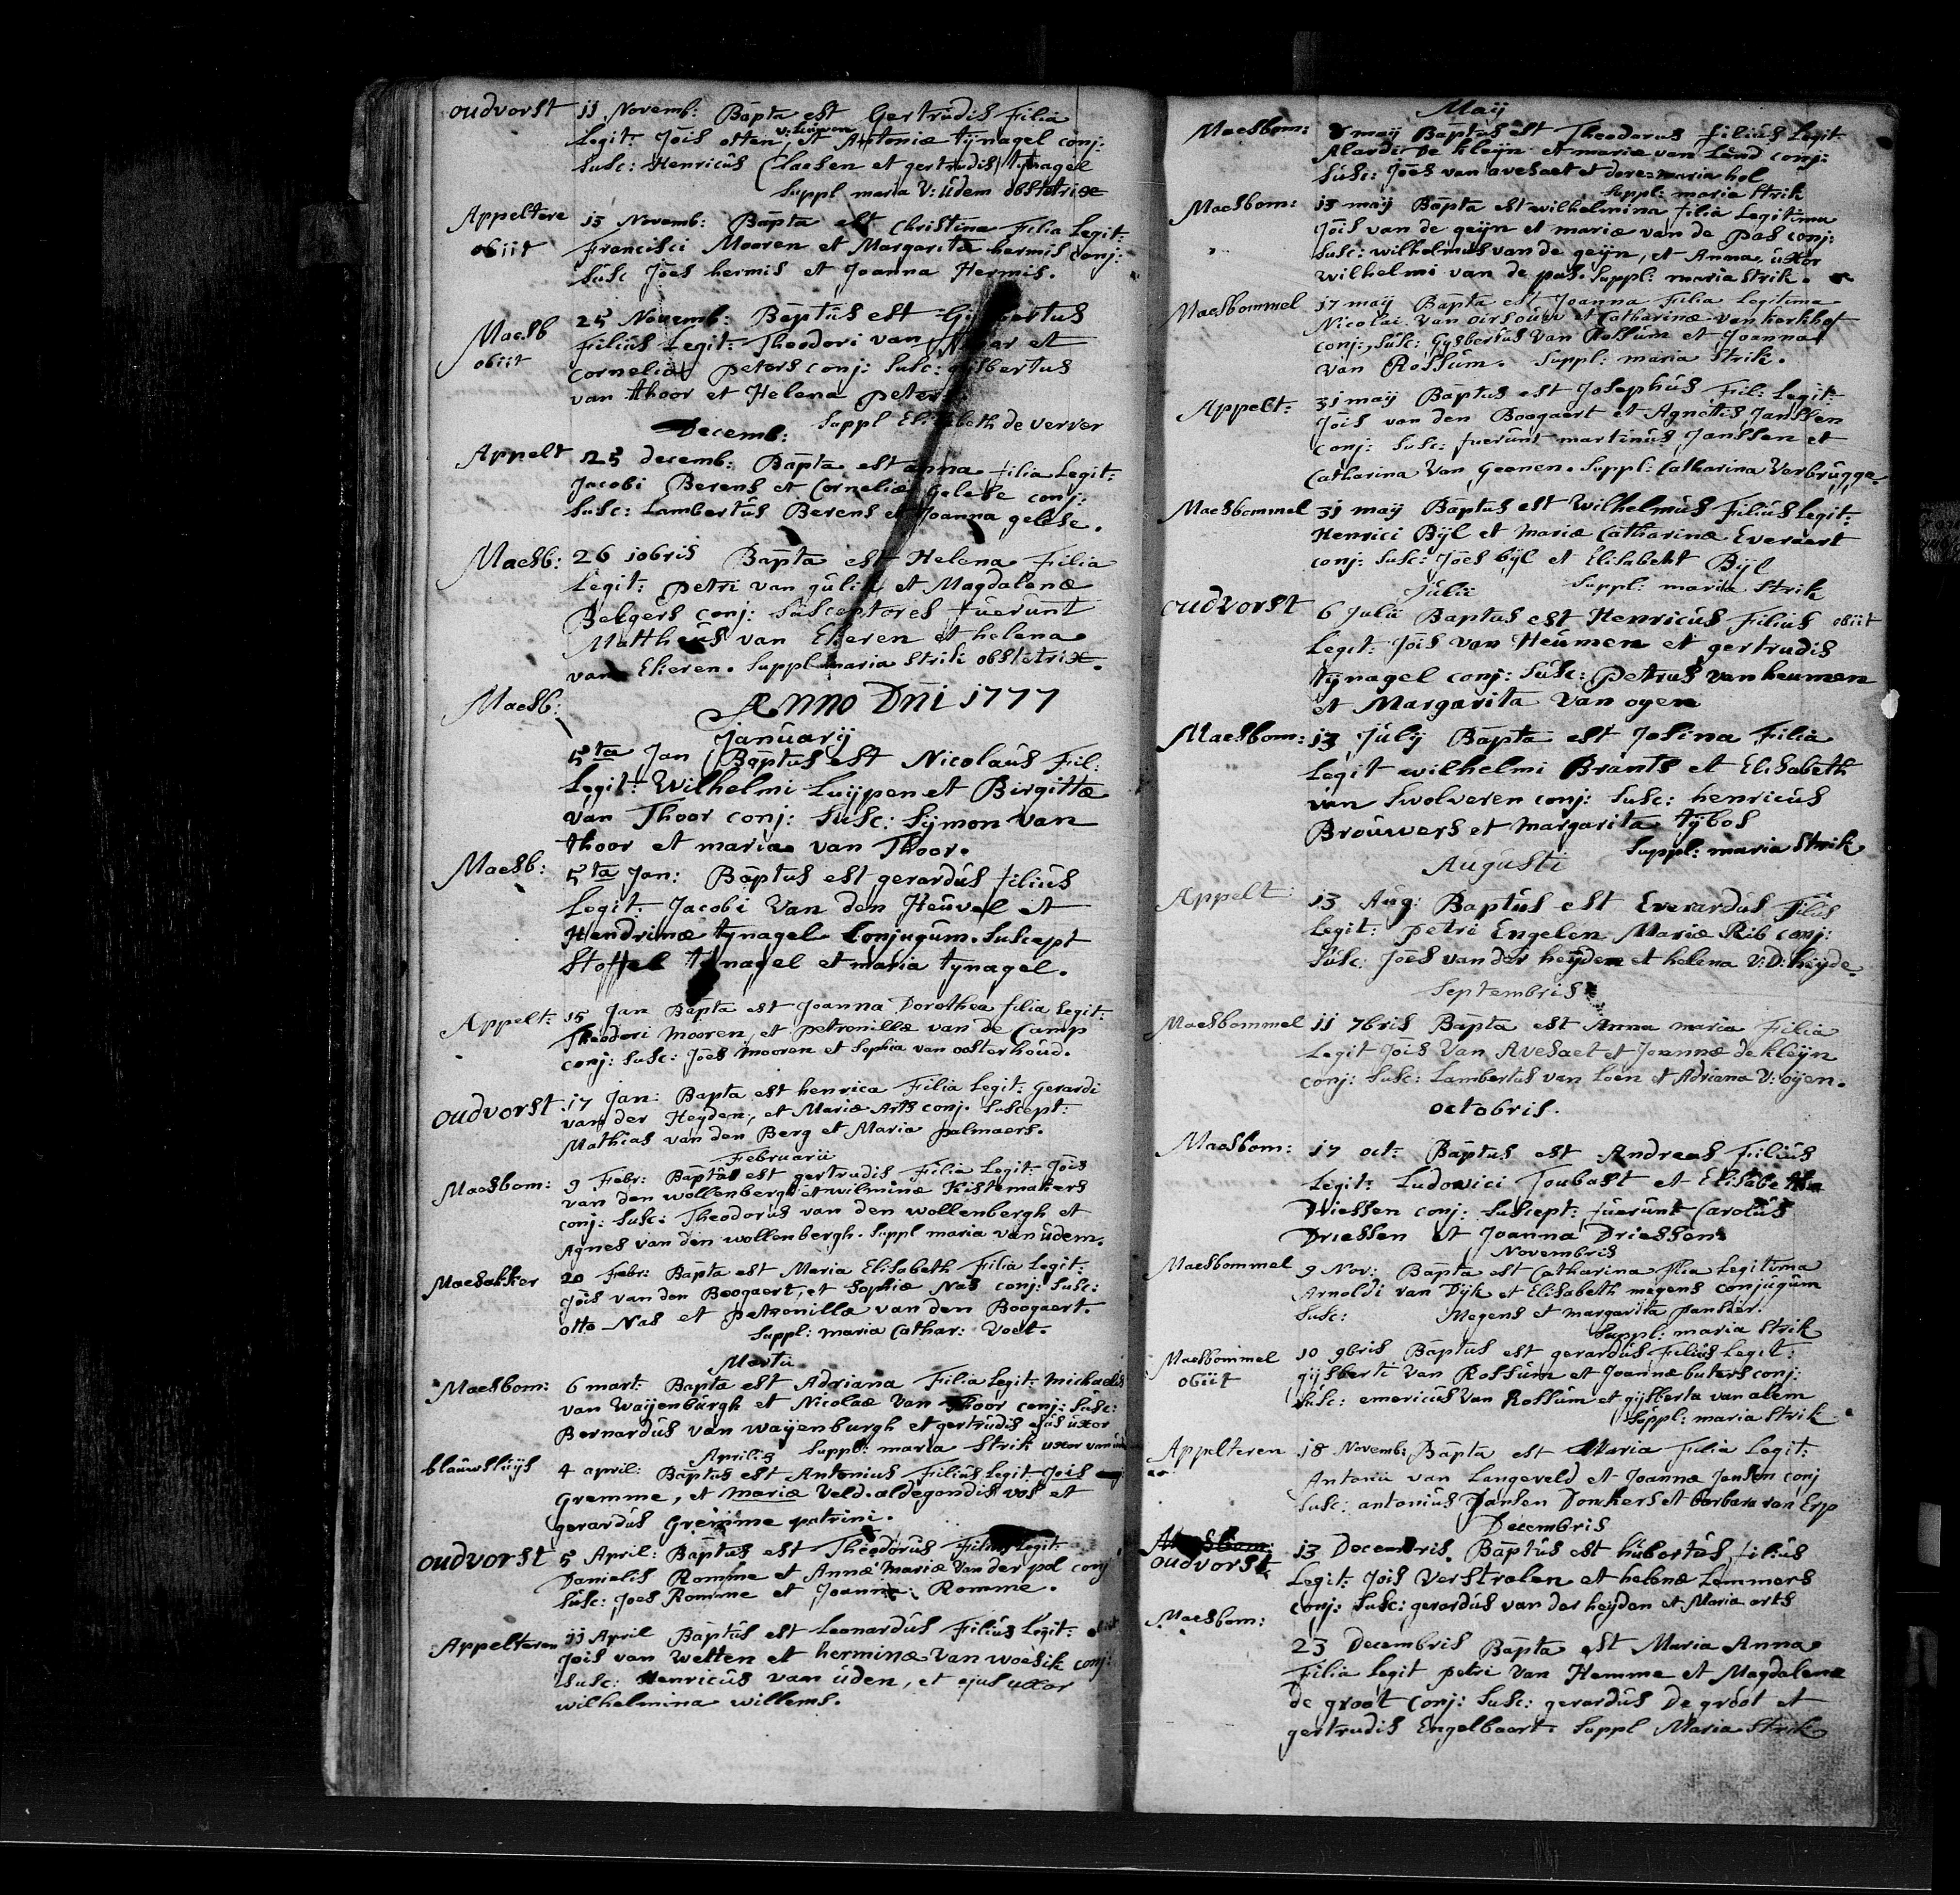 oudvorst 11 Novemb: Bapta est Gertrudis Filia
Legit: Jois otten v: Luijpen et Antoniæ tÿnagel conj:
Susc: Henricus Classen et gertrudis tÿnagel
Suppl maria v: udem obstetrix
Appeltere 13 Novemb: Bapta est Christina Filia Legit:
obiit Francisci Mooren et Margarita hermis conj:
Susc Joes hermis et Joanna Hermis.
Maesb 25 Novemb: Baptus est
obiit Filius Legit: Theodori van et
Cornelia peters conj: Susc: gijsbertus
van thoor et Helena peters
Suppl Elisabeth de verver
Decemb:
Appelt 25 decemb: Bapta est anna filia Legit:
Jacobi Berens et Corneliæ gelese conj:
Susc: Lambertus Berens et Joanna gelese.
Maesb: 26 10bris Bapta est Helena Filia
Legit: petri van gulik et Magdalenæ
Belgers conj: Susceptores fuerunt
Mattheus van Ekeren et helena
van Ekeren. Suppl maria Strik obstetrix.
Maesb: Anno Dni 1777
Januarij
5ta Jan Baptus est Nicolaus Fil:
Legit: Wilhelmi Luijpen et Birgittæ
van Thoor conj: Susc: Sÿmon van
thoor et maria van Thoor.
Maesb: 5ta Jan: Baptus est gerardus filius
Legit: Jacobi Van den Heuvel et
Hendrinæ tynagel Conjugum. Suscept
Stoffel tynagel et maria tynagel.
Appelt: 15 Jan Bapta est Joanna Dorothea filia Legit:
Theodori Mooren, et petronillæ van de Camp
conj: Susc: Joes mooren et Sophia van oosterhoud.
oudvorst 17 Jan: Bapta est henrica Filia Legit: Gerardi
van der Heyden, et Mariæ Arts conj. Suscept:
Mathias van den Berg et Maria palmaers.
Februarii
Maesbom: 9 Febr: Bapta est gertrudis Filia Legit: Jois
van den wollenbergh et wilminæ Kistemakers
conj: Susc: Theodorus van den wollenbergh et
Agnes van den wollenbergh. Suppl maria van udem.
Maesakker 20 Febr: Bapta est Maria Elisabeth Filia Legit:
Jois van den Boogaert, et Sophiæ Nas conj: Susc:
otto Nas et petronilla van den Boogaert.
Suppl: maria Cathar: Voet.
Martii
Maesbom: 6 mart: Bapta est Adriana Filia Legit: michaelis
van Waijenburgh et Nicolaæ Van Thoor conj: Susc:
Bernardus van wayenburgh et gertrudis ejus uxor
Suppl: maria Strik uxor van
Aprilis
blauwsluijs 4 april: Baptus est Antonius Filius Legit: Jois
Gremme, et mariæ Veld. aldegondis vos et
gerardus Gremme patrini.
oudvorst 5 April: Baptus est Theodorus Filius Legit:
Danielis Romme et Annæ Mariæ Van der pol conj
Susc: Joes Romme et Joanna Romme.
Appelteren 11 April Baptus est Leonardus Filius Legit: obiit
Jois van Wetten et herminæ Van woesik conj:
Susc: Henricus van uden, et ejus uxor
wilhelmina willems.
Maij
Maesbom: 8 maij Baptus est Theodorus filius Legit
Alardi De kleijn et mariæ van Lend conj:
Susc: Joes van avesaet et maria hol
Suppl: maria Strik
Maesbom: 13 maij Bapta est wilhelmina filia Legitima
Jois van de geijn et mariæ van de pas conj:
Susc: wilhelmus van de geijn, et Anna, uxor
wilhelmi van de pas. Suppl: maria Strik.
Maesbommel 17 maij Bapta est Joanna Filia Legitima
Nicolai Van oirsouw et Catharinæ van kerkhof
conj:, Susc: Gysbertus Van Rossum et Joanna
van Rossum. Suppl: maria Strik.
Appelt: 31 maij Baptus est Josephus Fil: Legit:
Jois van den Boogaert et Agnetis Janssen
conj: Susc: fuerunt martinus Janssen et
Catharina Van Geenen. Suppl: Catharina Verbrugge.
Maesbommel 31 maij Baptus est Wilhelmus Filius Legit:
Henrici Bÿl et Mariæ Catharinæ Everaert
conj: Susc: Joes bÿl et Elisabeht Bÿl
Suppl: maria Strik
Julii
oudvorst 6 Julii Baptus est Henricus Filius obiit
Legit: Jois van Heumen et gertrudis
tÿnagel conj: Susc: petrus van heumen
et Margarita Van oyen
Maesbom: 13 July Bapta est Josina Filia
Legit wilhelmi Brants et Elisabeth
van Swolveren conj: Susc: henricus
Brouwers et margarita tÿbos
Suppl: maria Strik
Augusti
Appelt: 13 Aug: Baptus est Everardus Filius
Legit: petri Engelen Mariæ Rib conj:
Susc: Joes van der heijden et helena V: D: heijde.
Septembris
Maesbommel 11 7bris Bapta est Anna maria Filia
Legit Jois Van Avesaet et Joannæ de kleijn
conj: Susc: Lambertus van Loen et Adriana V: oijen.
octobris.
Maesbom: 17 oct: Baptus est Andreas Filius
Legit: Ludovici Toubast et Elisabetha
Driessen conj: Suscept: fuerunt Carolus
Driessen et Joanna Driessen
Novembris
Maesbommel 9 Nov: Bapta est Catharina filia Legitima
Arnoldi van Dijk et Elisabeth megens conjugum
Susc: Megens et margarita pansier.
Suppl: maria Strik
Maesbommel 10 9bris Baptus est gerardus Filius Legit:
obiit gijsberti Van Rossum et Joannæ buters conj:
Susc: emericus Van Rossum et gijsberta van alem
Suppl: maria Strik
Appelteren 18 Novemb: Bapta est Maria Filia Legit:
Antonii van Langeveld et Joannæ Jansen conj
Susc: antonius Jansen Donkers et barbara van Erp
Decembris
oudvorst 13 Decembris. Baptus est hubertus filius
Legit: Jois Verstralen et helenæ Lemmers
conj: Susc: gerardus van der heijden et Maria arts
Maesbom:
23 Decembris Bapta est Maria Anna
Filia Legit petri Van Hemme et Magdalena
de groot conj: Susc: gerardus De groot et
gertrudis Engelbaert Suppl Maria Strik